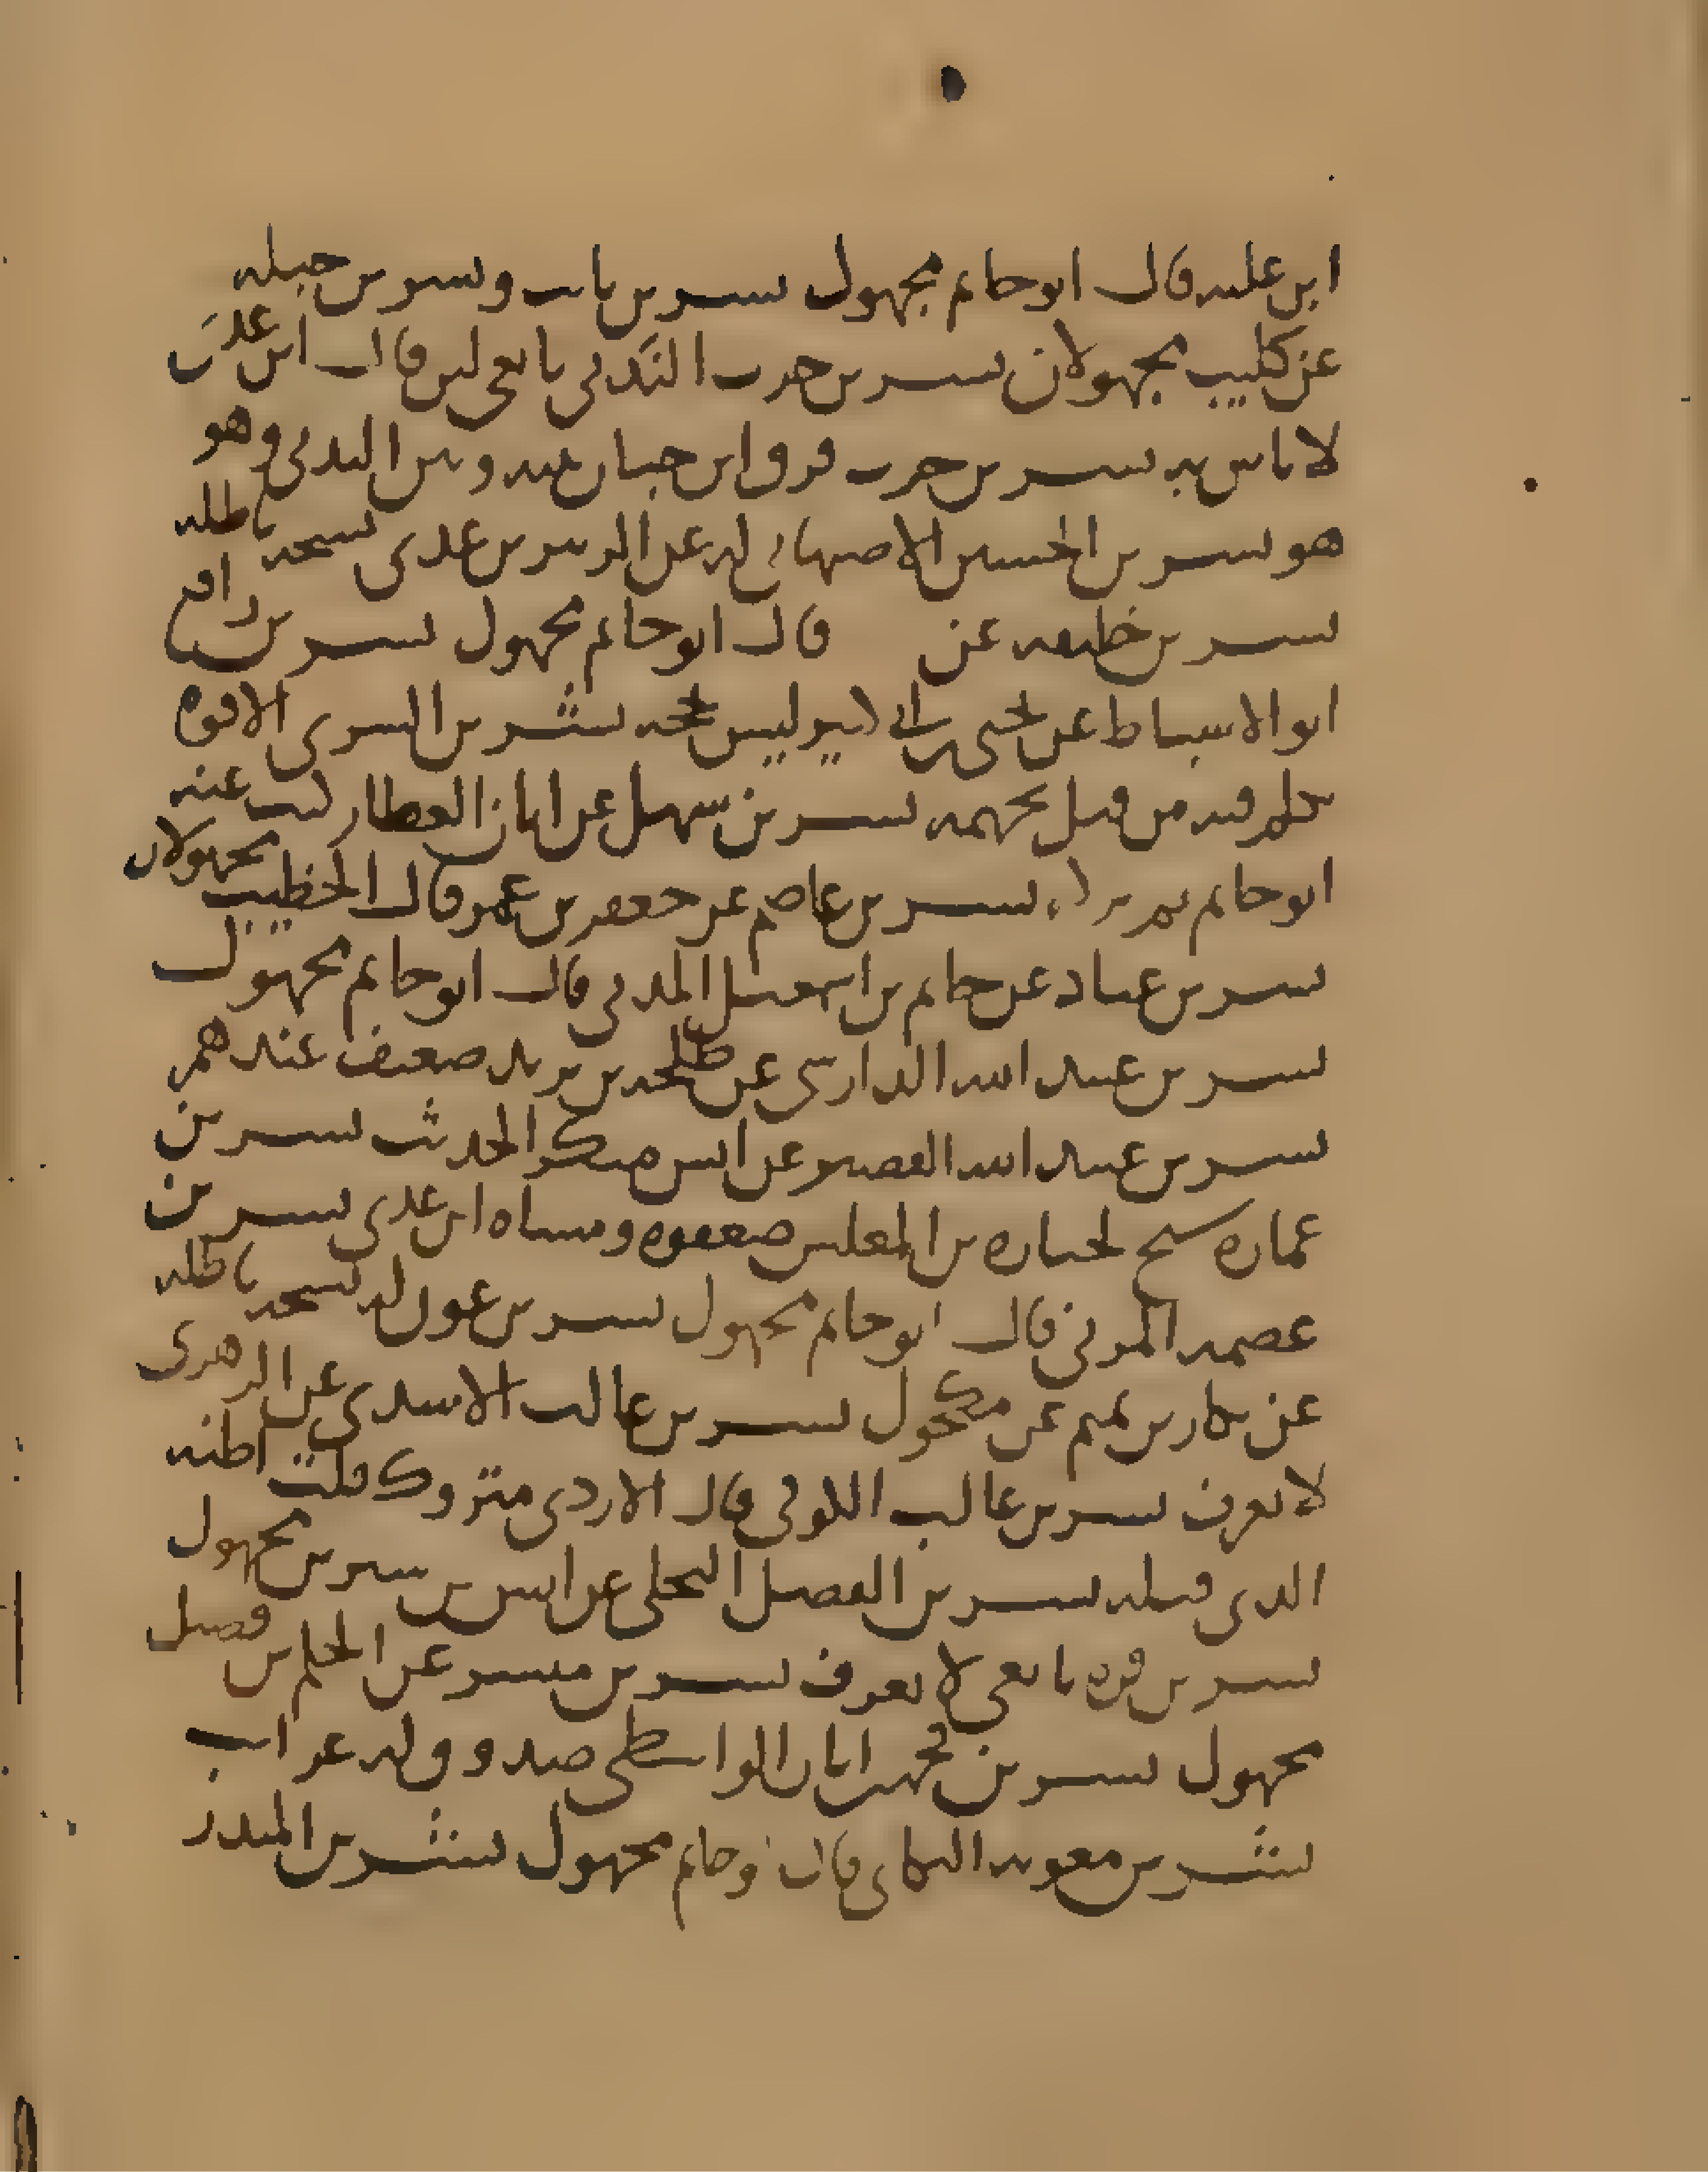 ابن علية قال ابو حاتم مجهول بشر بن ثابت وبشر بن جبلة
عن كليب مجهولان بشر بن حرب الندبي تابعي لين قال ابن عدي
لا باس به بشر بن حرب فرق ابن حبان بينه وبين الندبي وهو
هو بشر بن الحسين الاصبهاني له عن الزبير بن عدي نسخة باطلة
بشر بن خليفة عن قال ابو حاتم مجهول بشر بن رافع
ابو الاسباط عن يحيى بن ابي كثير ليس بحجة بشر بن السري الافوه
تكلم فيه من قبل تجهمه بشر بن سهل عن ابان العطار كتب عنه
ابو حاتم ثم بشر بن عاصم عن جعفر بن عمر قال الخطيب مجهولان
بشر بن عباد عن حاتم بن اسمعيل المدني قال ابو حاتم مجهول
بشر بن عبد الله الدارسي عن طلحة بن يزيد ضعيف عندهم
بشر بن عبد الله القصير عن انس منكر الحديث بشر بن
عمارة شيخ لجبارة بن المغلس ضعفوه ومشاه ابن عدي بشر بن
عصمة المزني قال ابو حاتم مجهول بشر بن عون له نسخة باطلة
عن بكار بن تميم عن مكحول بشر بن غالب الاسدي عن الزهري
لا يعرف بشر بن غالب الكوفي قال الازدي متروك قلت اظنه
الذي قبله بشر بن الفضل البجلي عن انس بن سيرين مجهول
بشر بن قرة تابعي لا يعرف بشر بن ميسر عن الحكم بن فصيل
مجهول بشر بن ابان الواسطي صدوق وله غرايب
بشر بن معوية البكاي قال ابو حاتم مجهول بشر بن المنذر